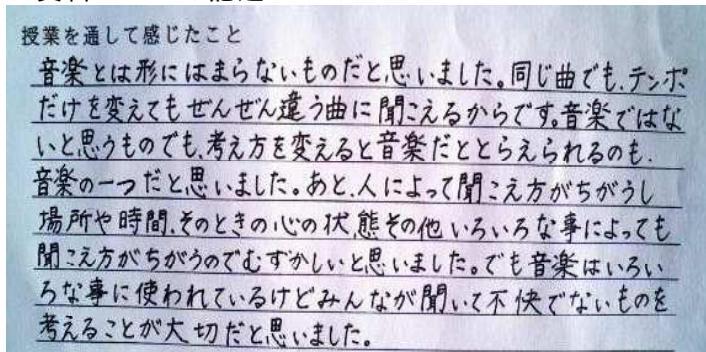 授業を通して感じたこと
音楽とは形にはまらないものだと思いました。同じ曲でも、テンポ
だけを変えてもぜんぜん違う曲に聞こえるからです。音楽ではな
いと思うものでも、考え方を変えると音楽だととらえられるのも、
音楽の一つだと思いました。あと、人によって聞こえ方がちがうし
場所や時間、そのときの心の状態その他いろいろな事によっても
聞こえ方がちがうのでむずかしいと思いました。でも音楽はいろい
ろな事に使われているけどみんなが聞いて不快でないものを
考えることが大切だと思いました。